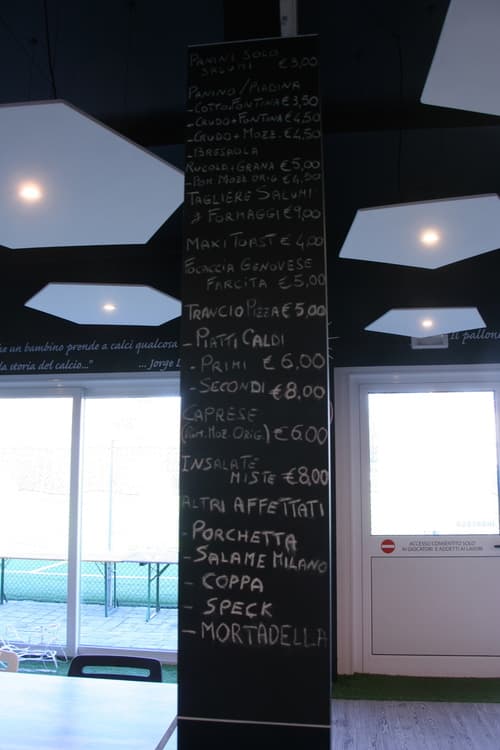 PANINI SOLO
SALUMI €3,00
PANINO/PIADINA
-COTTO+FONTINA €3,50
-CRUDO+FONTINA €4,50
-CRUDO+MOZZ. €4,50
-BRESAOLA
RUCOLA+GRANA €5,00
-POM. MOZZ. ORIG. €4,50
TAGLIERE SALUMI
FORMAGGI €9,00
MAXI TOAST €4,00
FOCACCIA GENOVESE
FARCITA €5,00
TRANCIO PIZZA €5,00
-PIATTI CALDI
-PRIMI €6,00
-SECONDI €8,00
CAPRESE
(POM. MOZ. ORIG.) €6,00
INSALATE
MISTE €8,00
ALTRI AFFETTATI
-PORCHETTA
-SALAME MILANO
-COPPA
-SPECK
-MORTADELLA
un bambino prende a calci qualcosa
la storia del calcio..." ... Jorge
Il pallon
ACCESSO CONSENTITO SOLO
AI GIOCATORI E ADDETTI AI LAVORI